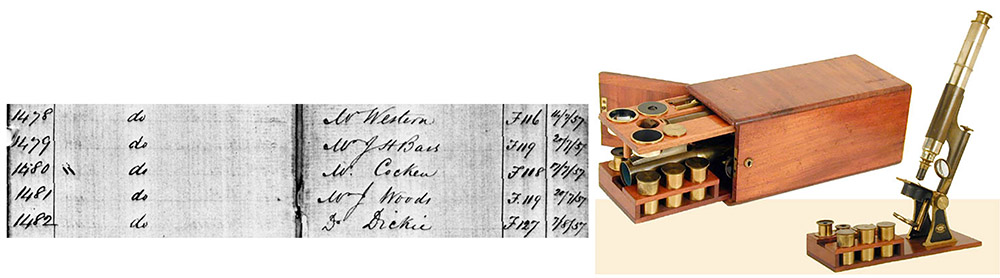 1478 do Mr Western F116 16/7/57
1479 do Mr J H F119 27/7/57
1480 " do Mr. Cocken F118 27/7/57
1481 do Mr J Woods F.119 29/7/57
1482 do Dr Dickie F127 7/8/57